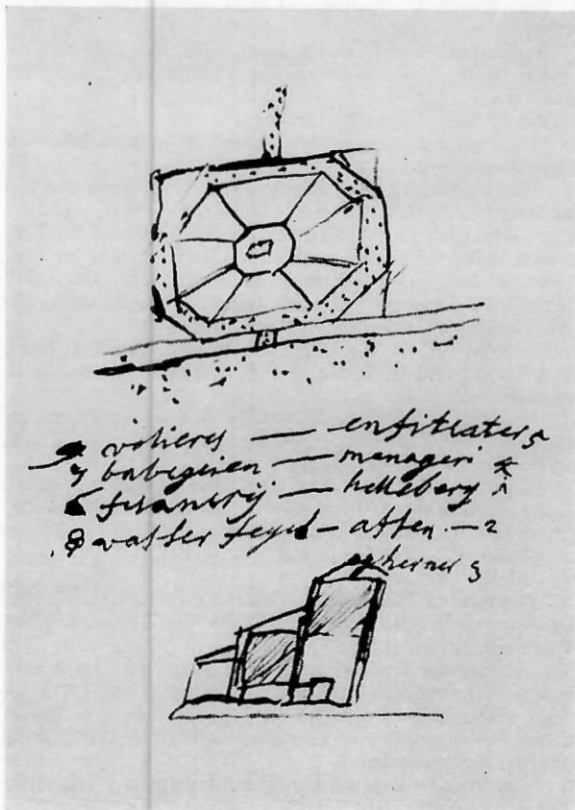 volieres — enfiteater 5
7 babegeien — manageri
6 fesanerij — helleberg
8 vasser fegel — affen — 2
herner 3